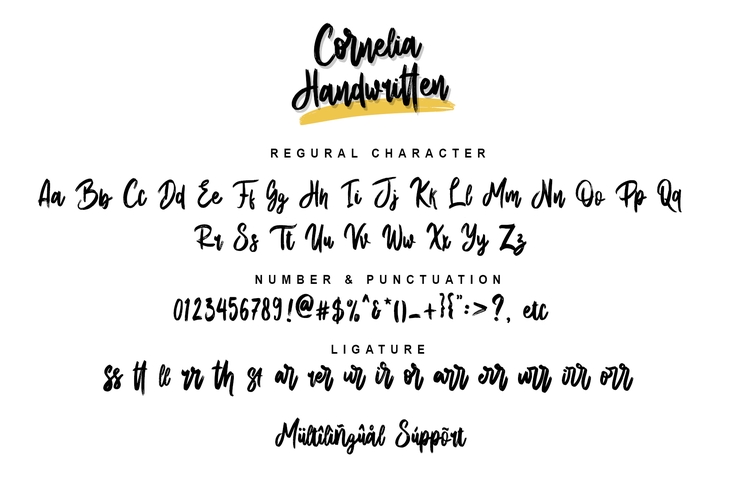 Cornelia
Handwritten
REGURAL CHARACTER
Aa Bb Cc Dd Ee Ff Gg Hh Ii Jj Kk Ll Mm Nn Oo Pp Qq
Rr Ss Tt Uu Vv Ww Xx Yy Zz
NUMBER & PUNCTUATION
0123456789!@#$%^&*()_+}{":>?, etc
LIGATURE
ss tt ll rr th st ar er ur ir or arr err urr irr orr
Mültîlíñgûål Súppõrt